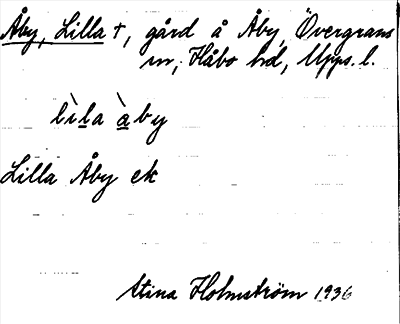 Åby, Lilla †, gård å Åby, Övergrans
sn, Håbo hd, Upps. l.
lìl̲a à̲by
Lilla Åby ek
Stina Holmström 1936